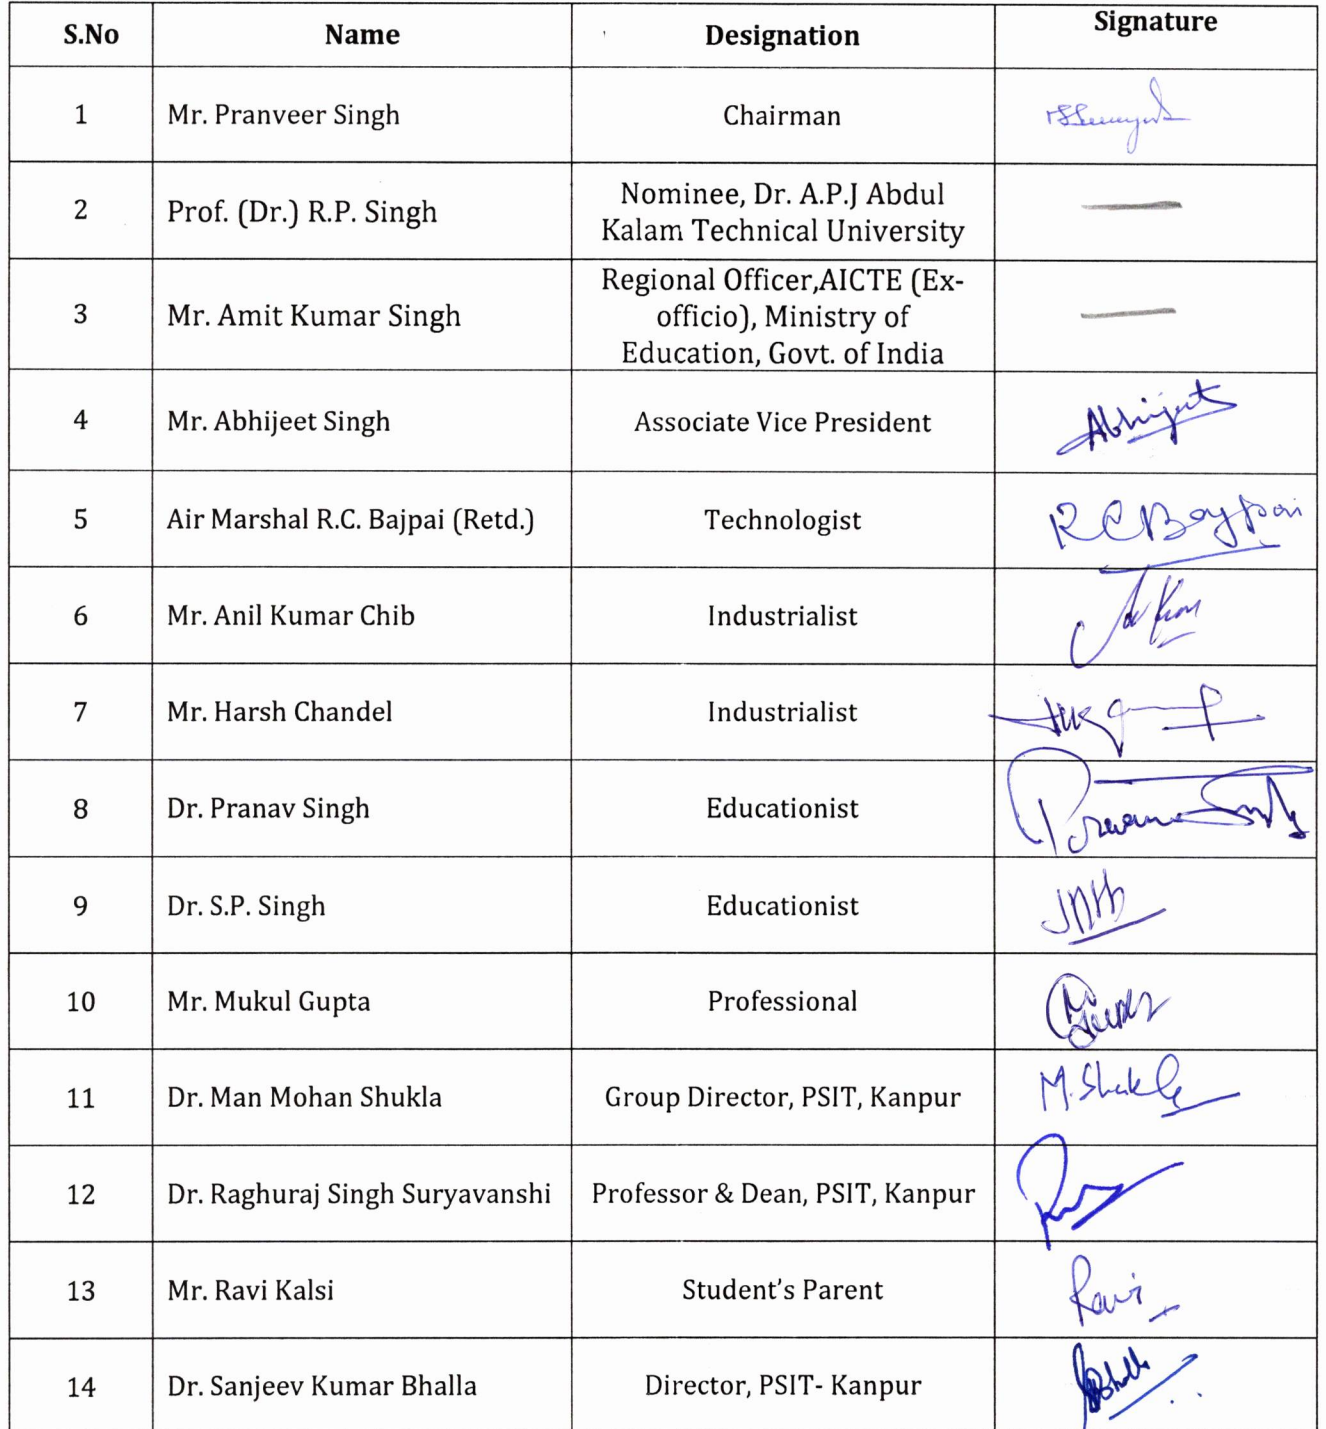 S.No Name Designation Signature
1 Mr. Pranveer Singh Chairman
2 Prof. (Dr.) R.P. Singh Nominee, Dr. A.P.J Abdul
Kalam Technical University
3 Mr. Amit Kumar Singh Regional Officer,AICTE (Ex-
officio), Ministry of
Education, Govt. of India
4 Mr. Abhijeet Singh Associate Vice President Abhijeet
5 Air Marshal R.C. Bajpai (Retd.) Technologist R C Bajpai
6 Mr. Anil Kumar Chib Industrialist
7 Mr. Harsh Chandel Industrialist
8 Dr. Pranav Singh Educationist
9 Dr. S.P. Singh Educationist
10 Mr. Mukul Gupta Professional
11 Dr. Man Mohan Shukla Group Director, PSIT, Kanpur M. Shukla
12 Dr. Raghuraj Singh Suryavanshi Professor & Dean, PSIT, Kanpur
13 Mr. Ravi Kalsi Student's Parent Ravi
14 Dr. Sanjeev Kumar Bhalla Director, PSIT- Kanpur